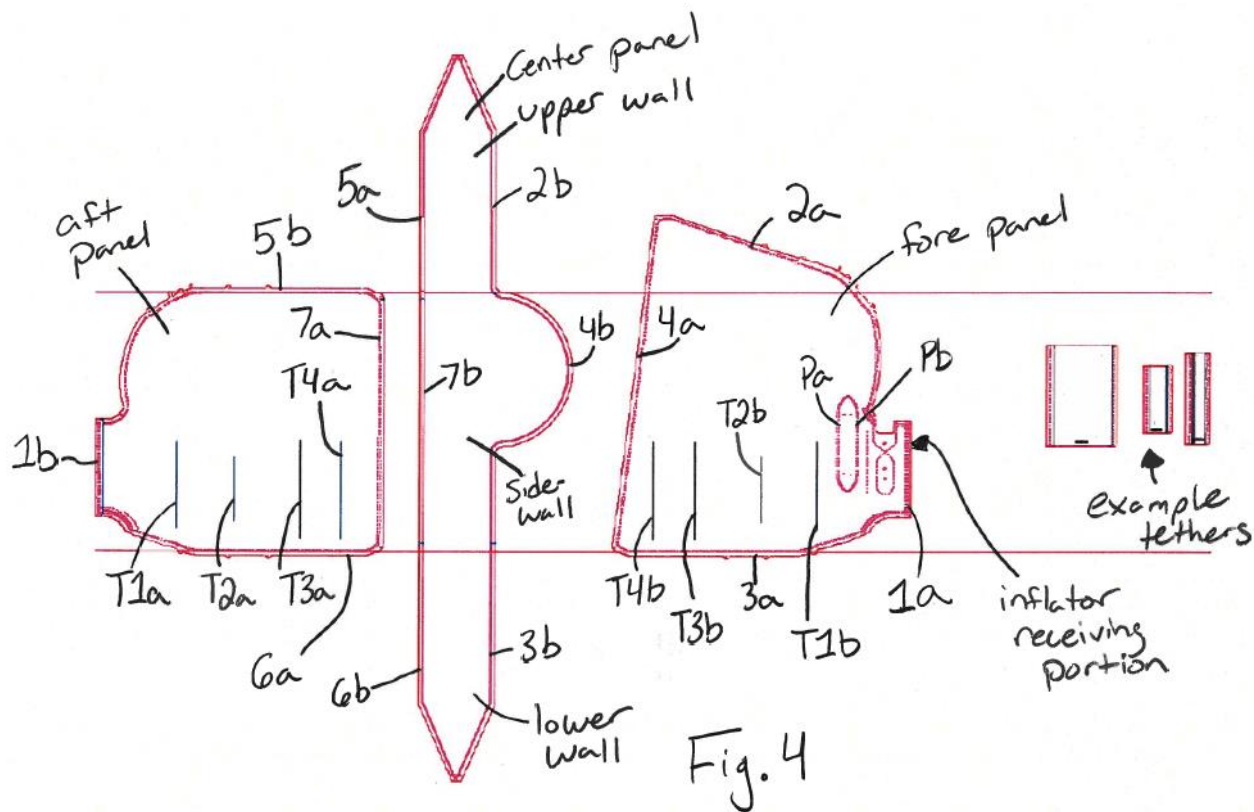 Center panel
upper wall
5a
2b
2a
aft
panel
5b
fore panel
7a
4b
4a
Pa
Pb
T4a
7b
T2b
1b
side-
wall
example
tethers
T1a
T2a
T3a
T4b
T3b
3a
T1b
1a
inflator
receiving
portion
6a
6b
3b
lower
wall
Fig. 4